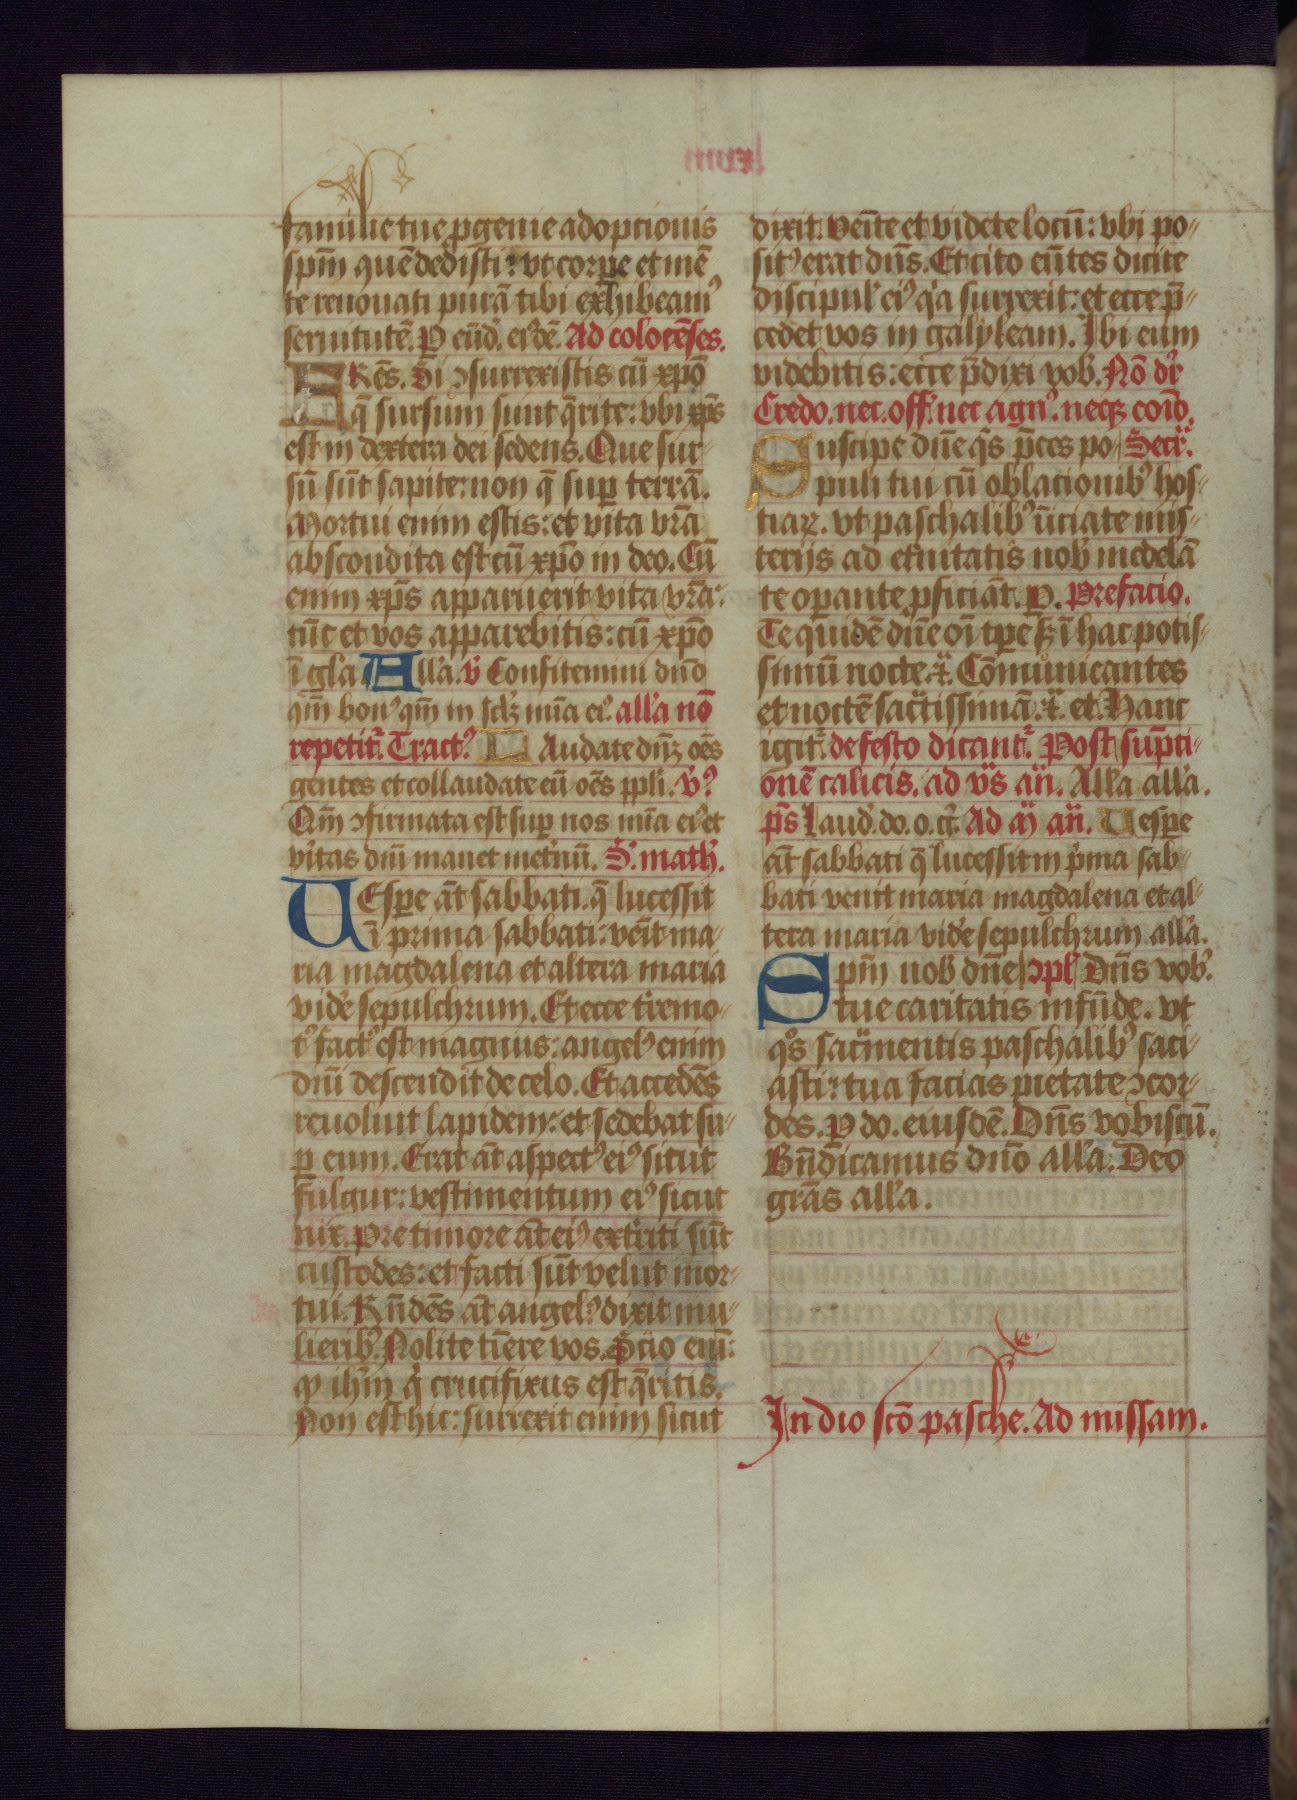 familie tue ꝓgenie adoptionis
spm̄ quē dedisti: vt corꝑe et mē
te renouati purā tibi exhibeamꝰ
seruitutē. P eūd. eiꝰdē. Ad colocēses.
FRēs. Si ↄsurrexistis cū xp̄o
q̄ sursum sunt q̄rite: vbi xp̄s
est in dextera dei sedens. Que sur-
sū sūt sapite: non q̄ suꝑ terrā.
Mortui enim estis: et vita vrā
abscondita est cū xp̄o in deo. Cū
enim xp̄s apparuerit vita vrā:
tūc et vos apparebitis: cū xp̄o
ī gla. All'a. v̄ Confitemini dn̄o
qm̄ bonꝰ qm̄ in scl'ꝫ mīa eiꝰ. all'a nō
repetit᷑. Tractꝰ. LAudate dn̄ꝫ oēs
gentes et collaudate eū oēs ppl'i. v̄ꝰ.
Qm̄ ↄfirmata est suꝑ nos mīa eiꝰ et
v'itas dn̄i manet inet'nū. S. math'.
VEsꝑe āt sabbati. q̄ lucessit
ī prima sabbati: venit ma-
ria magdalena et altera maria
vid'e sepulchrum. Et ecce t'remo-
t' factꝰ est magnus: angelꝰ enim
dn̄i descendit de celo. Et accedēs
reuoluit lapidem: et sedebat su-
ꝑ eum. Erat āt aspectꝰ eiꝰ sicut
fulgur: vestimentum eiꝰ sicut
nix. Pre timore āt eiꝰ ext'riti sūt
custodes: et facti sūt velut mor-
tui. Rn̄dēs āt angelꝰ dixit mu-
lieribꝰ. Nolite timere vos. Scio enī:
ꝙ ihm̄ q̇ crucifixus est q̄ritis.
Non est hic: surrexit enim sicut
dixit. Venite et videte locū: vbi po-
sitꝰ erat dn̄s. Et cito eūtes dicite
discipul' eiꝰ q'a surrexit: et ecce p̄-
cedet vos in galyleam. Ibi eum
videbitis: ecce p̄dixi vob'. Nō dr̄
Credo. nec. off'. nec agnꝰ. neqꝫ coīo.
Suscipe dn̄e q̄s p̄ces po- Secr̄.
puli tui cū oblacionibꝰ hos-
tiaꝝ. vt paschalibꝰ īiciate mis-
teriis ad et'nitatis nob' medelā
te oꝑante ꝓficiāt. P. Prefacio.
Te quidē dn̄e oī tꝑe sꝫ ī hac potis-
simū nocte. ⁊c̄. Cōmunicantes
et noctē sac̄tissimā. ⁊c̄. et. Hanc
igit᷑. de festo dicant᷑. Post sūpti-
onē calicis. ad v̄s an̄. All'a all'a.
p̄s Laud'. do. o. g̅. Ad m̄ an̄. Vesꝑe
āt sabbati q̄ lucessit in p'ma sab-
bati venit maria magdalena et al-
tera maria vid'e sepulchrum all'a.
Spm̄ nob' dn̄e ↄpl' Dn̄s vob'.
tue caritatis infūde. vt
qͦs sac̄mentis paschalibꝰ saci-
asti: tua facias pietate ↄcor-
des. P do. eiusdē. Dn̄s vobiscū.
Bn̄dicamus dn̄o all'a. Deo
grās all'a.
In dio scō pasche. Ad missam.